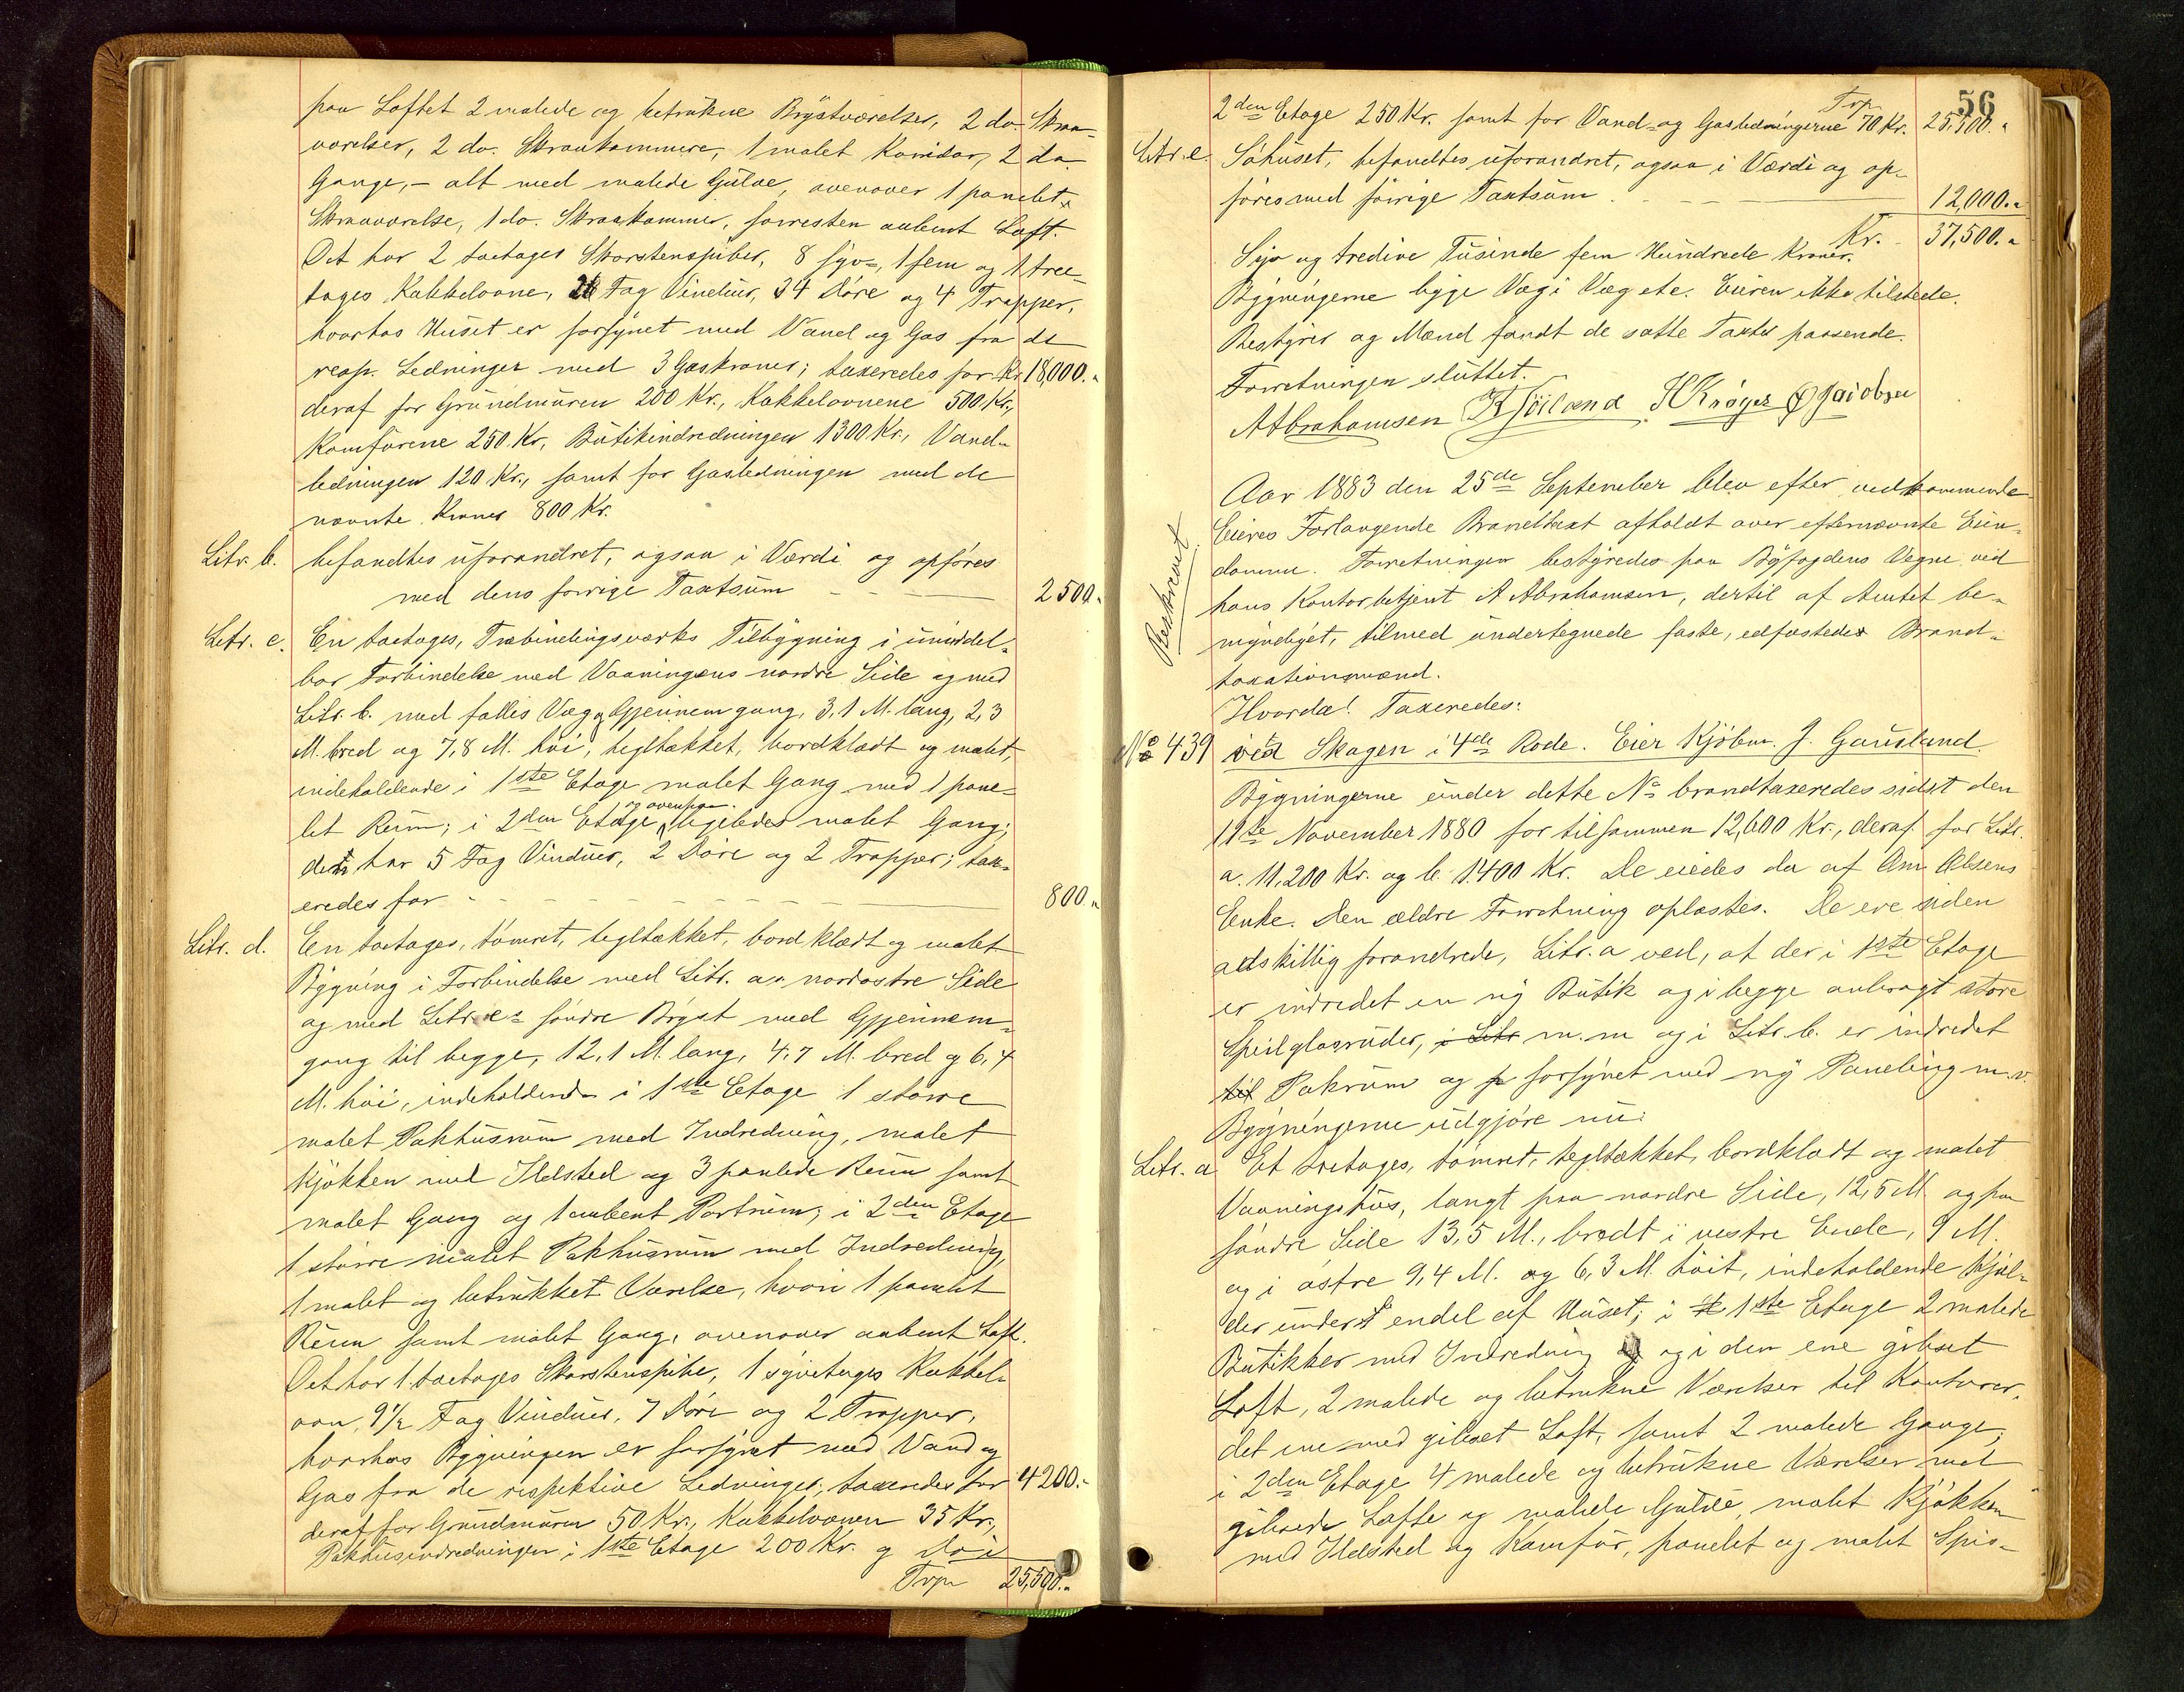 paa Loftet 2 malede og betrukne Brystværelser, 2 do. Skraa-
værelser, 2 do. Skraakammere, 1 malet Koridor, 2 do
Gange, - alt med malede Gulve, ovenover 1 panelt
Skraaværelse, 1 do. Skraakammer, forresten aabent Loft.
Det har 2 toetages Skorstenspiber, 8 syv-, 1 fem og 1 tree-
tages Kakkelovne, Fag Vinduer, 34 Døre og 4 Trapper,
hvorhos Huset er forsynet med Vand og Gas fra de
resp. Ledninger med 3 Gaskroner; taxeredes for Kr. 18,000.„
deraf for Grundmuren 200 Kr., Kakkelovnene 500 Kr.,
Komfurene 250 Kr., Butikindredningen 1300 Kr., Vand-
ledningen 120 Kr., samt for Gasledningen med de
nævnte Kroner 800 Kr.
Litr. b. befandtes uforandret, ogsaa i Værdi og opføres
med dens forrige Taxtsum - - - 2500.„
Litr. c. En toetages, Træbindingsværks Tilbygning i umiddel-
bar Forbindelse med Vaaningens nordre Side og med
Litr. b. med fælles Væg og Gjennemgang, 3,1 M. lang, 2,3
M. bred og 7,8 M. høi, tegltækket, bordklædt og malet,
indeholdende i 1ste Etage malet Gang med 1 pane-
let Rum; i 2den Etage og ovenpaa ligeledes malet Gang;
den har 5 Fag Vinduer, 2 Døre og 2 Trapper; tax-
eredes for - - - 800.„
Litr. d. En toetages, tømret, tegltækket, bordklædt og malet
Bygning i Forbindelse med Litr. a's nordostre Side
og med Litr. e's søndre Bryst med Gjennem-
gang til begge, 12,1 M. lang, 4,7 M. bred og 6,4
M. høi, indeholdende i 1ste Etage 1 større
malet Pakhusrum med Indredning, malet
Kjøkken med Ildsted og 3 panlede Rum samt
malet Gang og 1 aabent Portrum; i 2den Etage
1 større malet Pakhusrum med Indredning,
1 malet og betrukket Værelse, hvori 1 panlet
Rum samt malet Gang, ovenover aabent Loft.
Det har 1 toetages Skorstenspibe, 1 syvetages Kakkel-
ovn, 9½ Fag Vinduer, 7 Døre og 2 Trapper,
hvorhos Bygningen er forsynet med Vand og
Gas fra de respektive Ledninger; taxeredes for 4200.-
deraf for Grundmuren 50 Kr., Kakkelovnen 35 Kr.,
Pakhusindredningen i 1ste Etage 200 Kr. og do i
Trp 25,500.„
56
Trp.
2den Etage 250 Kr. samt for Vand- og Gasledningerne 70 Kr. 25,500.„
Litr. e. Søhuset, befandtes uforandret, ogsaa i Værdi og op-
føres med forrige Taxtsum - - - 12,000.„
Kr. 37,500.„
Syv og tredive Tusinde fem Hundrede Kroner.
Bygningerne ligge Væg i Væg etc. Eieren ikke tilstede.
Bestyrer og Mænd fandt de satte Taxter passende.
Forretningen sluttet.
A Abrahamsen K Høiland H Krøger O Jacobsen
Aar 1883 den 25de September blev efter vedkommende
Eieres Forlangende Brandtaxt afholdt over efternævnte Eien-
domme. Forretningen bestyredes paa Byfogdens Vegne ved
hans Kontorbetjent A Abrahamsen, dertil af Amtet be-
myndiget, tilmed undertegnede faste, edfæstede Brand-
taxationsmænd.
Beskrevet
Hvorda! Taxeredes:
No 439 ved Skagen i 4de Rode. Eier Kjøbm. J. Gausland.
Bygningerne under dette No brandtaxeredes sidst den
11te November 1880 for tilsammen 12,600 Kr., deraf for Litr.
a. 11,200 Kr. og b. 1400 Kr. De eiedes da af Am. Olsens
Enke. Den ældre Forretning oplæstes. De ere siden
adskillig forandrede, Litr. a ved, at der i 1ste Etage
er indredet en ny Butik og i begge anbragt store
Speilglasruder, i Litr m. m og i Litr. b. er indredet
til Pakrum og forsynet med ny Paneling m.v.
Bygningerne udgjøre nu:
Litr. a Et toetages, tømret, tegltækket, bordklædt og malet
Vaaningshus, langt paa nordre Side, 12,5 M. og paa
søndre Side 13,5 M., bredt i vestre Ende, 9 M.
og i østre 9,4 M. og 6,3 M. høit, indeholdende Kjæl-
der under endel af Huset; i 1ste Etage 2 malede
Butikker med Indredning og i den ene gibset
Loft, 2 malede og betrukne Værelser til Kontorer,
det ene med gibset Loft, samt 2 malede Gange;
i 2den Etage 4 malede og betrukne Værelser med
gibsede Lofte og malede Gulve, malet Kjøkken
med Ildsted og Komfur, panelet og malet Spis-